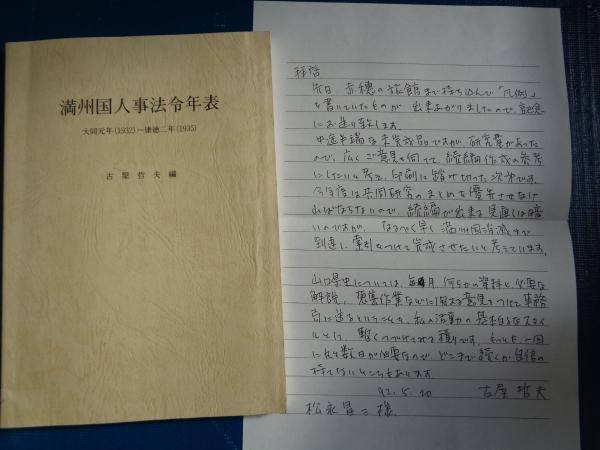 満州国人事法令年表
大同元年(1932)～康徳二年(1935)
古屋哲夫編
拝啓
先日、赤穂の旅館まで持ち込んで「凡例」
を書いていたものが、出来あがりましたので、記念
にお送り致します。
中途半端な未完成品ですが、研究費があった
ので、広くご意見を伺って、続編作成の参考
にしたいと考え、印刷に踏み切った次第です。
今年度は共同研究のまとめを優先させなけ
ればならないので、続編が出来る見通しは暗
いのですが、なるべく早く満州国消滅まで
到達し、索引をつけて完成させたいと考えています。
山口県史については、毎月、何らかの資料と必要な
解説、
作業などに関する意見をつけて事務
局に送るということを、私の活動の基本的なスタイ
ルとして、暫くつづけてみる積りです。もっとも一回
に数日が必要なので、どこまで続くか自信の
持てないところもあります
92.5.20 古屋哲夫
松永昌三様